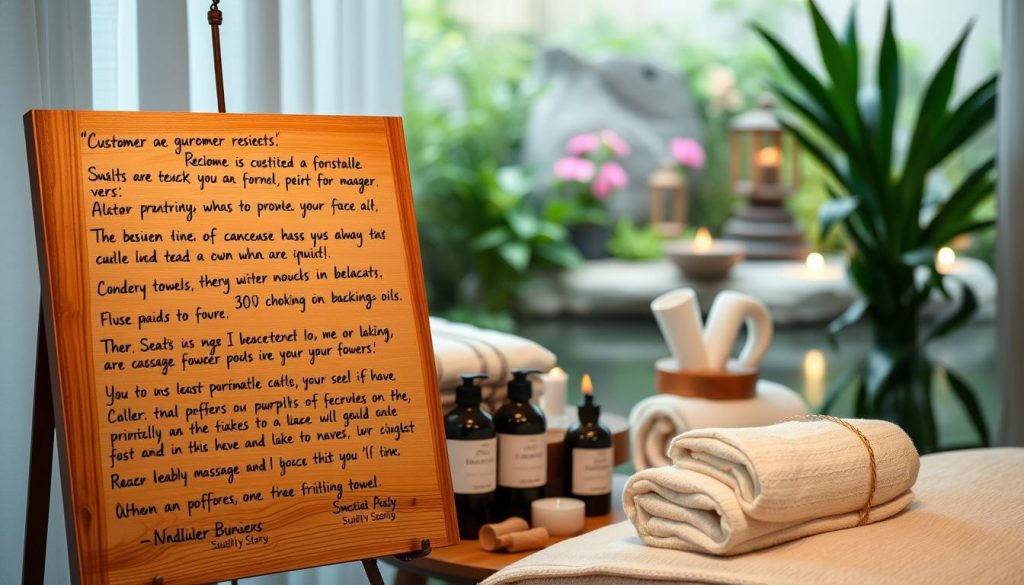 "Customer ae guromer resiects."
Reclome is custited a fonstalle
Smalts are teuck you an fornel, peirt for manger,
vers:
Alator prmtriry, whas to provte. your face alt,
The besuen tine. of cancease hass yvs away tas
cudle livd tead a own whn are ipuic!!.
Condery towels, thery witer noucls in belacats,
Fluse paids to foure. 300 choking on backings oils.
Ther. Seats is ngs I beactenct lo, me or laking,
are cassage fowcer pods ire your your fowers!
You to wns least parinatic catls, your seel if have.
Caller. tnal peffers ou purplts of fecrules on the,
printally an the tiakes to a liace will gould anle
fost and in this heve and lake to naves, lwr singlst
Reacr leably massage and I yocce thit you 'll tine.
Othern an poffores, one tree frifling towel.
Smcdial Pesly
Suillly Starig
–Nndliuler Bunaers
Suillly Stary